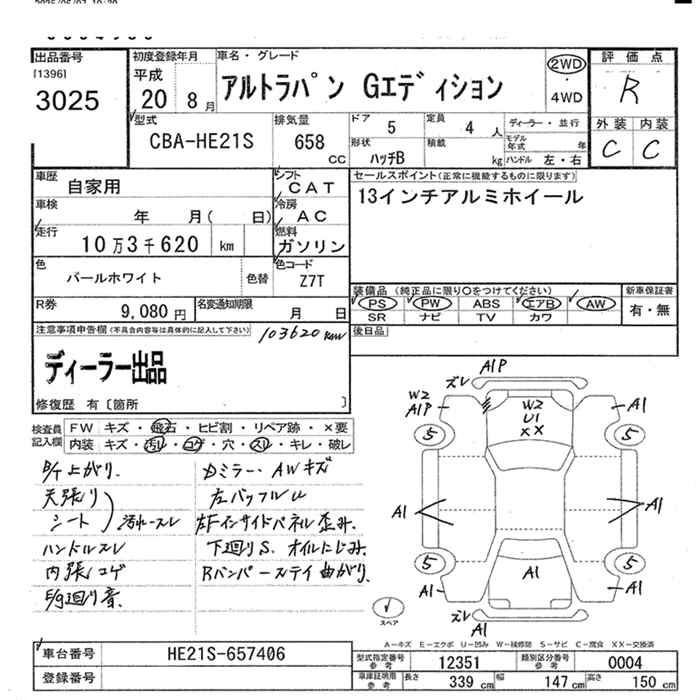 出品番号
[1396]
3025
初度登録年月
平成
20年 8月
車名・グレード
アルトラパン Gエディション
2WD
・
4WD
評価点
R
外装 内装
C C
型式
CBA-HE21S
排気量
658 CC
ドア 5
定員 4人
形状 ハッチB
積載 kg
ディーラー・並行
モデル年式 年
ハンドル 左・右
車歴
自家用
シフト
CAT
車検
年 月( 日)
冷房
AC
走行
10万3千620 km
燃料
ガソリン
色
パールホワイト
色替
色コード
Z7T
R券
9,080円
名変通知期限
月 日
セールスポイント(正常に機能するものに限ります)
13インチアルミホイール
装備品(純正品に限り○をつけてください)
PS PW ABS エアB AW
SR ナビ TV カワ
新車保証書
有・無
後日品
注意事項申告欄(不具合内容等は具体的に記入して下さい)
103620km
ディーラー出品
修復歴 有〔箇所 〕
検査員記入欄
FW キズ・飛石・ヒビ割・リペア跡・×要
内装 キズ・汚れ・コゲ・穴・スレ・キレ・破レ
B/T上がり.
天張り
シート 汚れスレ
ハンドルスレ
内張コゲ
E/g廻り音.
Dミラー、AWキズ
左バッフルU
左Fインサイドパネル歪み.
下廻りS、オイルにじみ.
Rバンパーステイ曲がり.
ズレ A1P
W2
A1P
W2
U1
XX
A1
5 5
A1 A1
5 5
A1 A1 A1
ズレ
A1
スペア
A-キズ E-エクボ U-凹み W-補修跡 S-サビ C-腐食 XX-交換済
車台番号
HE21S-657406
登録番号
型式指定番号 参考 12351
類別区分番号 参考 0004
車庫証明用 参考 長さ 339 cm 幅 147 cm 高さ 150 cm